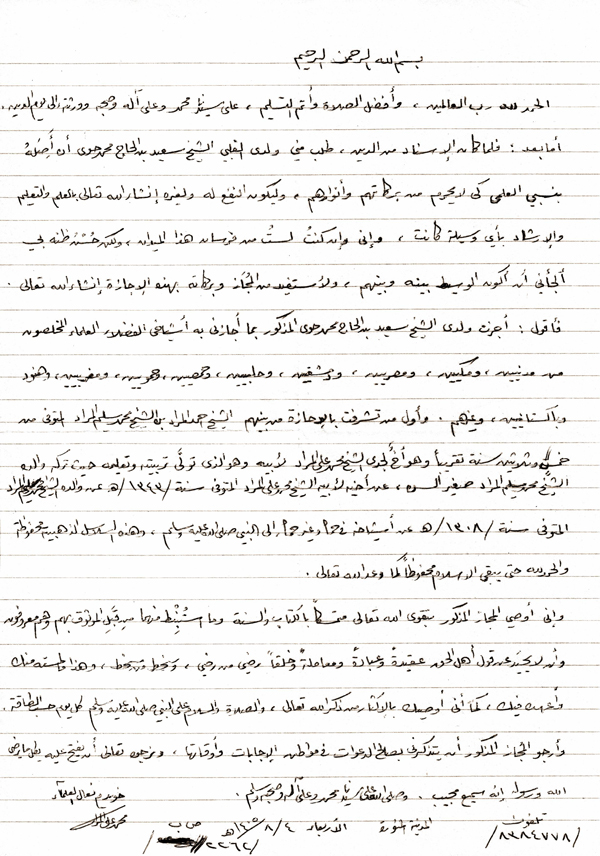 بسم الله الرحمن الرحيم
الحمد لله رب العالمين ، وأفضل الصلاة وأتم التسليم ، على سيدنا محمد وعلى آله وصحبه وورثته إلى يوم الدين .
أما بعد : فلما كان الإسناد من الدين ، طلب مني ولدي القلبي الشيخ سعيد بن الحاج محمد حوى أن أصله
بنسبي العلمي كي لا يحرم من بركاتهم وأنوارهم ، وليكون النفع له ولغيره إنشاء الله تعالى بالعلم والتعليم
والإرشاد بأي وسيلة كانت ، وإني وإن كنتُ لستُ من فرسان هذا الميدان ، ولكن حُسْنُ ظنه بي
ألجأني أن أكون الوسيط بينه وبينهم ، ولأستفيد من المُجاز وبركاته بهذه الإجازة إنشاء الله تعالى .
فأقول : أجزت ولدي الشيخ سعيد بن الحاج محمد حوى المذكور بما أجازني به أشياخي الفضلاء العلماء المخلصون
من مدنيين ، ومكيين ، ومصريين ، ودمشقيين ، وحلبيين ، وحمصيين ، وحمويين ، ومغربيين ، وهنود
وباكستانيين ، وغيرهم . وأول من تشرفت بالإجازة من بينهم الشيخ احمد المراد بن الشيخ محمد سليم المراد المتوفى من
خمس وثلاثين سنة تقريباً وهو أخٌ لجدي الشيخ محمد علي المراد لأبيه وهو الذي تولَّى تربيته وتعليمه حيث تركه والده
الشيخ محمد سليم المراد صغير السن ، عن أخيه لأبيه الشيخ محمد علي المراد المتوفى سنة /١٣٤٣/ هـ عن والده الشيخ محمد سليم المراد
المتوفى سنة /١٣٠٨/ هـ عن أشياخه في حماة وغير حماة إلى النبي صلى الله عليه وسلم ، وهذه السلاسل الذهبية محفوظة
والحمد لله حتى يبقى الإسلام محفوظاً كما وعد الله تعالى .
وإني أوصي المجاز المذكور بتقوى الله تعالى متمسكاً بالكتاب والسنة وما استُنْبِطَ منهما من قِبَلِ الموثوق بهم وهم معروفون
وأن لا يحيد عن قول أهل الحق عقيدةً وعبادةً ومعاملةً وخُلُقاً رضي من رضي ، وسخط من سخط ، وهذا ما لمسته منك
وأعهده فيك ، كما أني أوصيك بالإكثار من ذكر الله تعالى ، والصلاة والسلام على النبي صلى الله عليه وسلم كل يوم حسب الطاقة .
وأرجو المجاز المذكور أن يتذكرني بصالح الدعوات في مواطن الإجابات وأوقاتها ، ونرجوه تعالى أن يفتح عليه بكل ما يرضي
الله ورسوله إنه سميع مجيب . وصلى الله على سيدنا محمد وعلى آله وصحبه وسلم . خويدم نعال العلماء
تلفون المدينة المنورة الأربعاء ٤/ ٨/ ١٤٠٥هـ ص ب محمد علي المراد
/٨٣٨٤٧٧٨/ /٢٢٦٢/